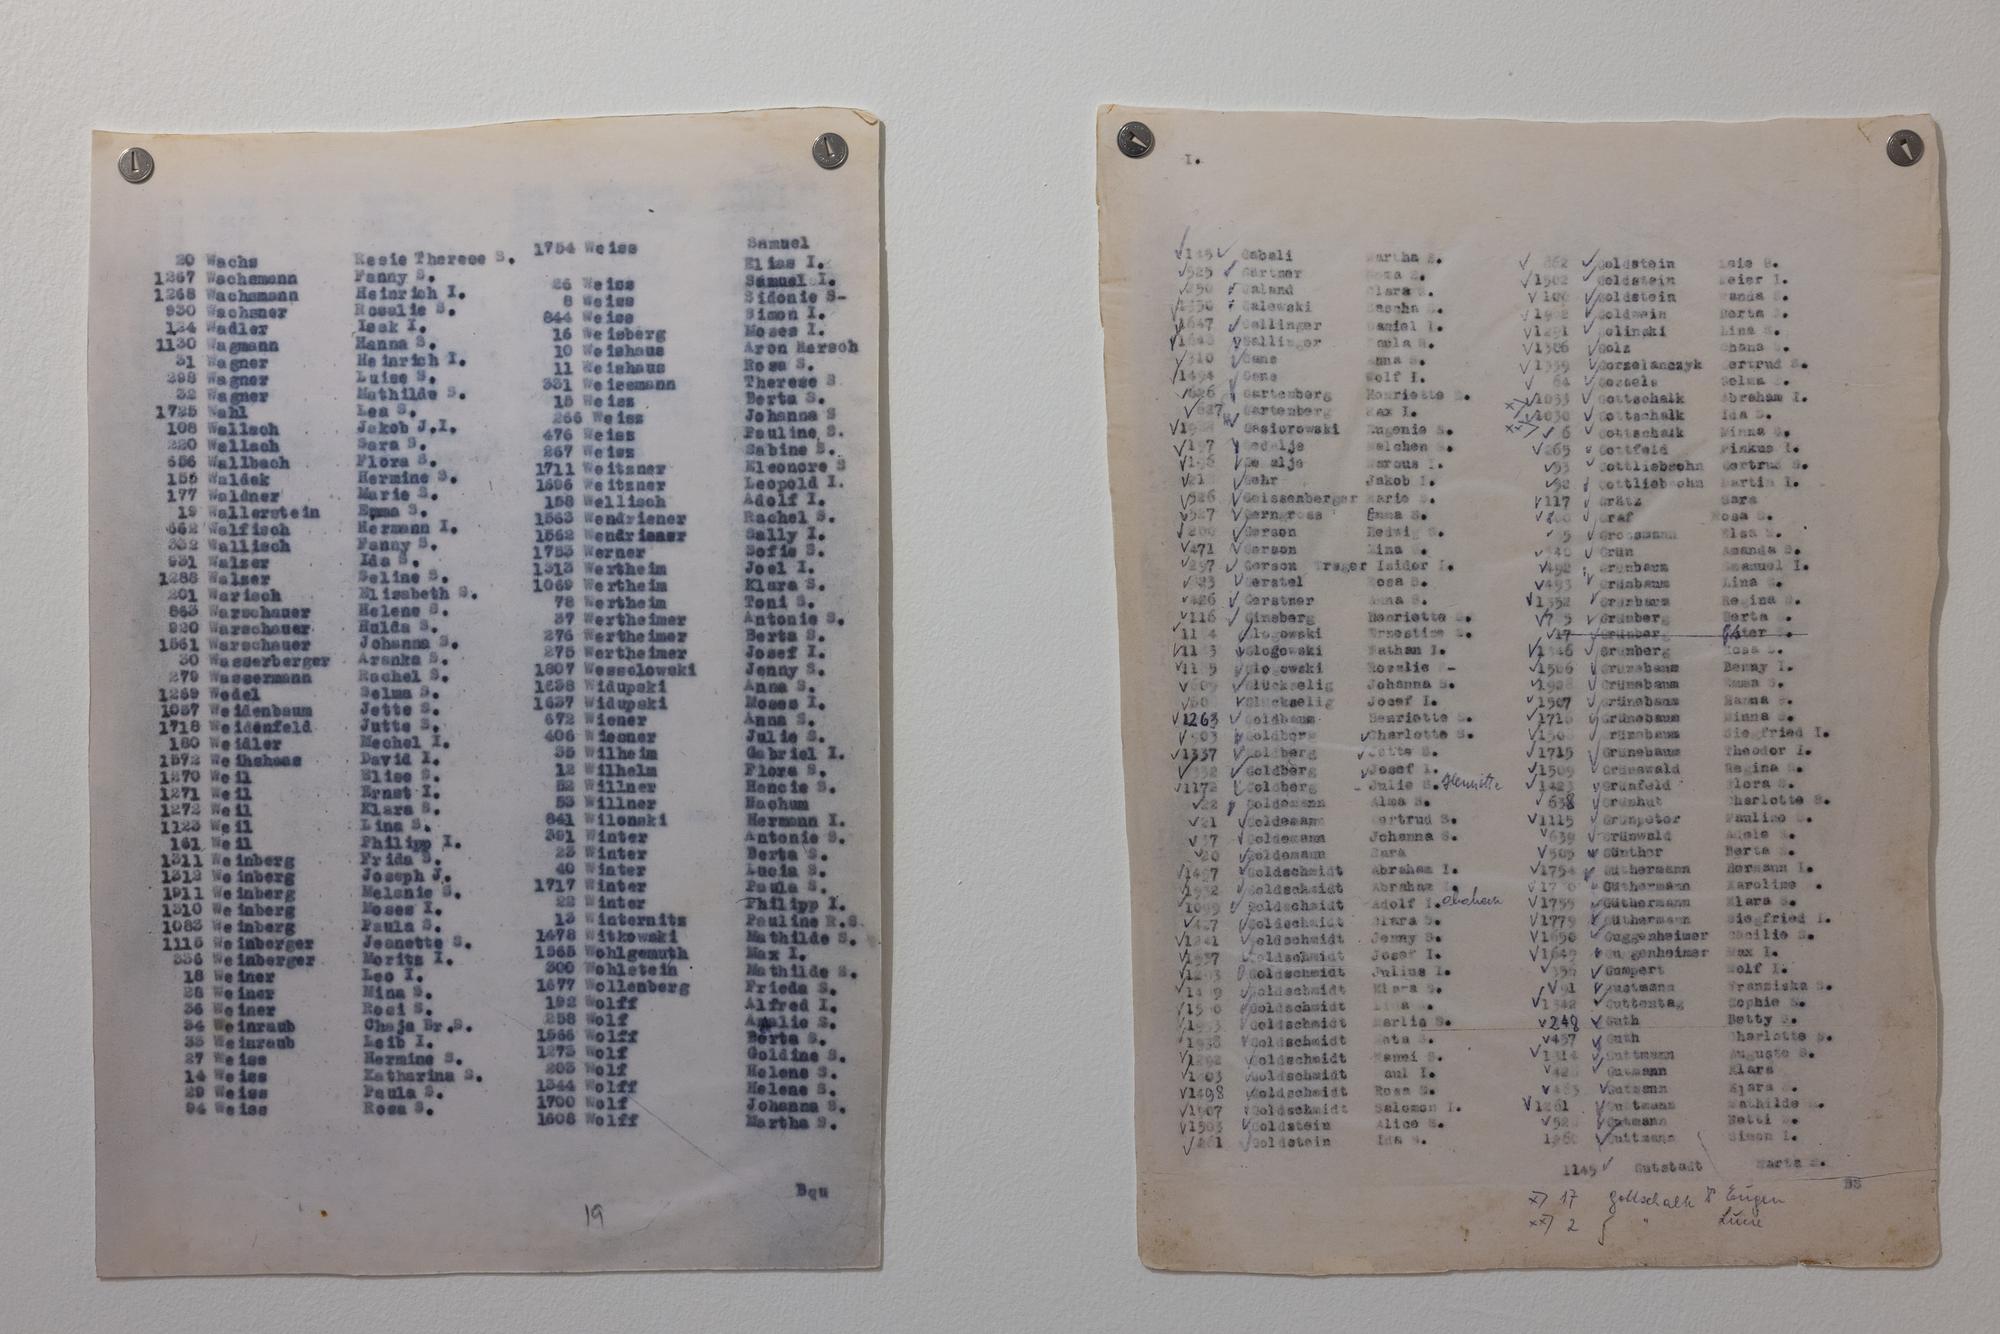 20 Wachs Resie Therese S.
1267 Wachsmann Fanny S.
1268 Wachsmann Heinrich I.
930 Wachsner Roselie S.
124 Wadler Isak I.
1130 Wagmann Hanna S.
31 Wagner Heinrich I.
298 Wagner Luise S.
32 Wagner Mathilde S.
1725 Wahl Lea S.
108 Wallach Jakob J.I.
220 Wallach Sara S.
656 Wallbach Flora S.
155 Waldek Hermine S.
177 Waldner Marie S.
19 Wallerstein Emma S.
662 Walfisch Hermann I.
332 Wallisch Fanny S.
931 Walzer Ida S.
1288 Walzer Seline S.
201 Warisch Elisabeth S.
863 Warschauer Helene S.
920 Warschauer Hulda S.
1561 Warschauer Johanna S.
30 Wasserberger Aranka S.
279 Wassermann Rachel S.
1269 Wedel Selma S.
1087 Weidenbaum Jette S.
1718 Weidenfeld Jutte S.
180 Weidler Mechel I.
1572 Weihshaus David I.
1270 Weil Elise S.
1271 Weil Ernst I.
1272 Weil Klara S.
1123 Weil Lina S.
161 Weil Philipp I.
1311 Weinberg Frida S.
1312 Weinberg Joseph J.
1911 Weinberg Melanie S.
1310 Weinberg Moses I.
1083 Weinberg Paula S.
1116 Weinberger Jeanette S.
336 Weinberger Moritz I.
18 Weiner Leo I.
28 Weiner Mina S.
36 Weiner Rosi S.
34 Weinraub Chaja Br.S.
33 Weinraub Leib I.
27 Weiss Hermine S.
14 Weiss Katharina S.
29 Weiss Paula S.
94 Weiss Rosa S.
1754 Weiss Samuel
Elias I.
26 Weiss Samuel I.
8 Weiss Sidonie S-
844 Weiss Simon I.
16 Weisberg Moses I.
10 Weishaus Aron Hersch
11 Weishaus Rosa S.
331 Weissmann Therese S
15 Weiss Berta S.
266 Weiss Johanna S
476 Weiss Pauline S.
267 Weiss Sabine S.
1711 Weitzner Eleonore S
1696 Weitzner Leopold I.
158 Wellisch Adolf I.
1563 Wendriener Rachel S.
1562 Wendriener Sally I.
1753 Werner Sofie S.
1313 Wertheim Joel I.
1069 Wertheim Klara S.
78 Wertheim Toni S.
37 Wertheimer Antonie S.
276 Wertheimer Berta S.
275 Wertheimer Josef I.
1807 Wesselowski Jenny S.
1638 Widupski Anna S.
1637 Widupski Moses I.
672 Wiener Anna S.
406 Wiesner Julie S.
35 Wilheim Gabriel I.
12 Wilhelm Flora S.
52 Willner Hencie S.
53 Willner Nachum
841 Wilonski Hermann I.
391 Winter Antonie S.
23 Winter Berta S.
40 Winter Lucia S.
1717 Winter Paula S.
22 Winter Philipp I.
13 Winternits Pauline R.S.
1478 Witkowski Mathilde S.
1565 Wohlgemuth Max I.
300 Wohlstein Mathilde S.
1677 Wollenberg Frieda S.
192 Wolff Alfred I.
258 Wolf Amalie S.
1566 Wolff Berta S.
1273 Wolf Goldine S.
203 Wolf Helene S.
1344 Wolff Helene S.
1700 Wolf Johanna S.
1608 Wolff Martha S.
Bqu
19
I.
Gabali Martha S.
525 Gärtner S.
Galand Clara S.
Galewski Sascha S.
1647 Gallinger Daniel I.
Gallinger Paula S.
310 Gans Anna S.
1494 Gans Wolf I.
626 Gartenberg Henriette S.
627 Gartenberg Max I.
Gasiorowski Eugenie S.
197 Gedalje Malchen S.
196 Gedalje Marcus I.
21 Gehr Jakob I.
526 Geissenberger Marie S.
527 Gerngross Emma S.
200 Gerson Hedwig S.
471 Gerson Mina S.
297 Gerson Treger Isidor I.
Gerstel Rosa S.
426 Gerstner Anna S.
116 Ginsberg Henriette S.
Glogowski Ernestine S.
Glogowski Nathan I.
Glogowski Rosalie -
609 Glückselig Johanna S.
Glückselig Josef I.
1263 Goldbaum Henriette S.
503 Goldberg Charlotte S.
1337 Goldberg Jette S.
332 Goldberg Josef I.
1172 Goldberg Julie S. Henriette
22 Goldemann Alma S.
21 Goldemann Gertrud S.
Goldemann Johanna S.
20 Goldemann Sara
1497 Goldschmidt Abraham I.
1932 Goldschmidt Abraham I.
1099 Goldschmidt Adolf I. Abraham
Goldschmidt Klara S.
1241 Goldschmidt Jenny S.
1937 Goldschmidt Josef I.
1293 Goldschmidt Julius I.
Goldschmidt Klara S.
Goldschmidt Lina S.
1933 Goldschmidt Marlie S.
1938 Goldschmidt Meta S.
1292 Goldschmidt Nanni S.
Goldschmidt Paul I.
1498 Goldschmidt Rosa S.
1907 Goldschmidt Salomon I.
1503 Goldstein Alice S.
261 Goldstein Ida S.
Goldstein S.
1502 Goldstein Meier I.
Goldstein Wanda S.
Goldwein Berta S.
1291 Golinski Lina S.
1306 Golz Chana S.
1339 Gorzelanczyk Gertrud S.
64 Gossels Selma S.
1033 Gottschalk Abraham I.
1030 Gottschalk Ida S.
6 Gottschalk Minna S.
265 Gottfeld Pinkus I.
53 Gottliebsohn Gertrud S.
52 Gottliebsohn Martin I.
117 Grätz Sara
Graf Rosa S.
Grossmann Elsa S.
Grün Amanda S.
492 Grünbaum Emanuel I.
493 Grünbaum Lina S.
1352 Grünbaum Regina S.
Grünberg Berta S.
17 Grünberg
1346 Grünberg Rosa S.
1506 Grünebaum Benny I.
Grünebaum Emma S.
1507 Grünebaum Hanna S.
1716 Grünebaum Minna S.
Grünebaum Siegfried I.
1715 Grünebaum Theodor I.
1509 Grünewald Regina S.
1423 Grünfeld Flora S.
638 Grünhut Charlotte S.
1115 Grünpeter Pauline S.
639 Grünwald Adele S.
505 Günther Berta S.
1754 Güthermann Hermann I.
Güthermann Karoline
1755 Güthermann Klara S.
1779 Güthermann Siegfried I.
1650 Guggenheimer Cäcilie S.
1649 Guggenheimer Max I.
356 Gumpert Wolf I.
91 Gustmann Franziska S.
1342 Guttentag Sophie S.
248 Guth Betty S.
457 Guth Charlotte S.
1314 Guttmann Auguste S.
Gutmann Klara
Gutmann Klara S.
1261 Guttmann Mathilde S.
Gutmann Netti S.
Guttmann Simon I.
1145 Gutstadt Marta S.
BS
x) 17 Gottschalk Eugen
xx) 2 " Lucie